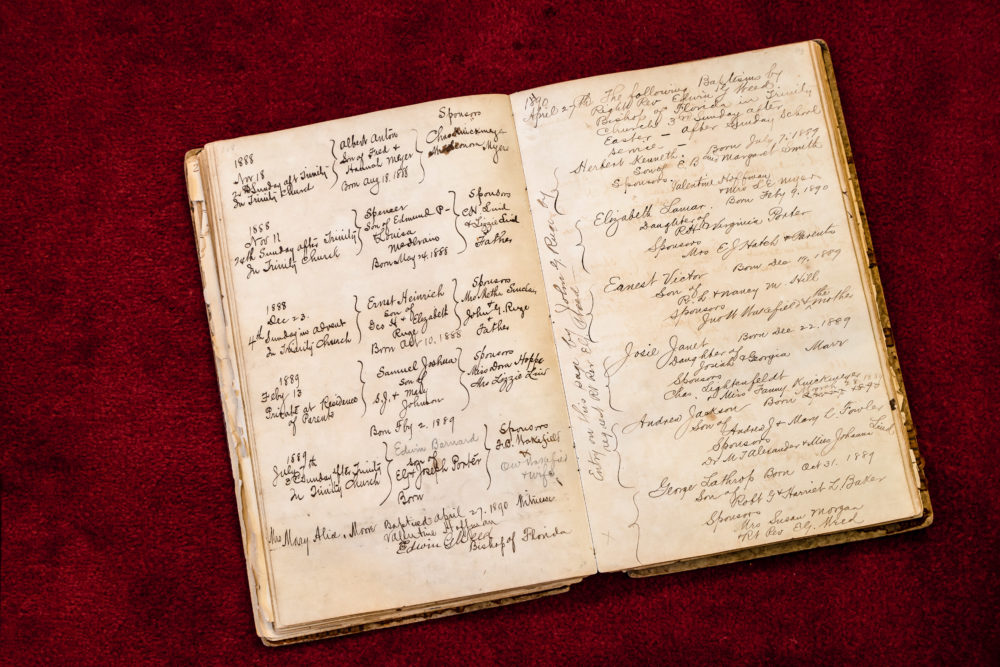 1888
Nov 18
Sunday aft Trinity
In Trinity Church
Albert Anton
Son of Fred &
Hannah Meyer
Born Aug 18. 1888
Sponsors
Chas Ruickmeyer
1888
Nov 11
24th Sunday after Trinity
In Trinity Church
Spencer
Son of Edmund P-
Louisa
Medbrano
Born May 24. 1888
Sponsors
C H Lind
& Lizzie Lind
Father
1888
Dec 23.
4th Sunday in Advent
In Trinity Church
Ernst Heinrich
Son of
Geo H & Elizabeth
Ruge
Born Oct 10. 1888
Sponsors
Mrs Metha Sinclair
John G. Ruge
Father
1889
Feby 13
Private at Residence
of Parents
Samuel Joshua
Son of
S.J. & Mary
Johnson
Born Feby 2. 1889
Sponsors
Miss Dora Hoppe
Mrs Lizzie Lind
1889
July 7th
3d Sunday after Trinity
In Trinity Church
Edwin Barnard
Son of
& Joseph Porter
Born
Sponsors
Wakefield
&
Wakefield
& Wife
Mrs Mary Moon Baptised April 27. 1890 Witness
Valentine Hoffman
Edwin G Weed
Bishop of Florida
1890
April 27th The following Baptisms by
Right Rev Edwin G Weed
Bishop of Florida in Trinity
Church 3rd Sunday after
Easter - after Sunday School
service -
Herbert Kenneth. Born July 7, 1889
Son of & Margaret Smith
Sponsors. Valentine Hoffman
& Mrs Meyer
Elizabeth Lamar. Born Feby 9, 1890
Daughter of
R.H. & Virginia Porter
Sponsors
Mrs E J Hatch & Parents
Earnest Victor Born Dec 17, 1889
Son of
R. L & Nancy M. Hill
Sponsors
Jno W Wakefield & the Mother
Josie Janet Born Dec 22, 1889
Daughter of
Josiah & Georgia Marr
Sponsors
Chas. Leightenfeldt
& Miss Fanny Ruickmeyer
Andrew Jackson Born
Son of Andrew J & Mary C. Fowler
Sponsors
Dr M T Alexander & Miss Johanna Lind
George Lathrop Born Oct 31. 1889
Son of
Robt G & Harriet L. Baker
Sponsors
Mrs Susan Morgan
& Rt Rev E G Weed
Entry on this page by John G Ruge by
request Rt Rev E G Weed